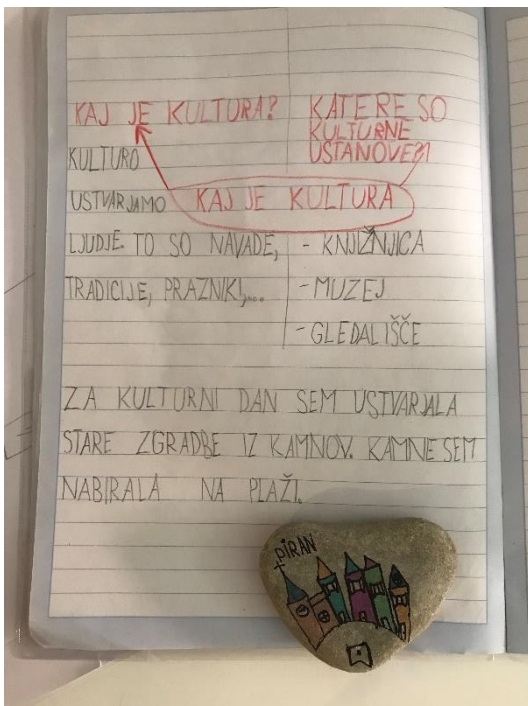 KAJ JE KULTURA?
KULTURO
USTVARJAMO
LJUDJE. TO SO NAVADE,
TRADICIJE, PRAZNIKI,...
KAJ JE KULTURA
KATERE SO
KULTURNE
USTANOVE?
- KNJIŽNJICA
- MUZEJ
- GLEDALIŠČE
ZA KULTURNI DAN SEM USTVARJALA
STARE ZGRADBE IZ KAMNOV. KAMNE SEM
NABIRALA NA PLAŽI.
PIRAN